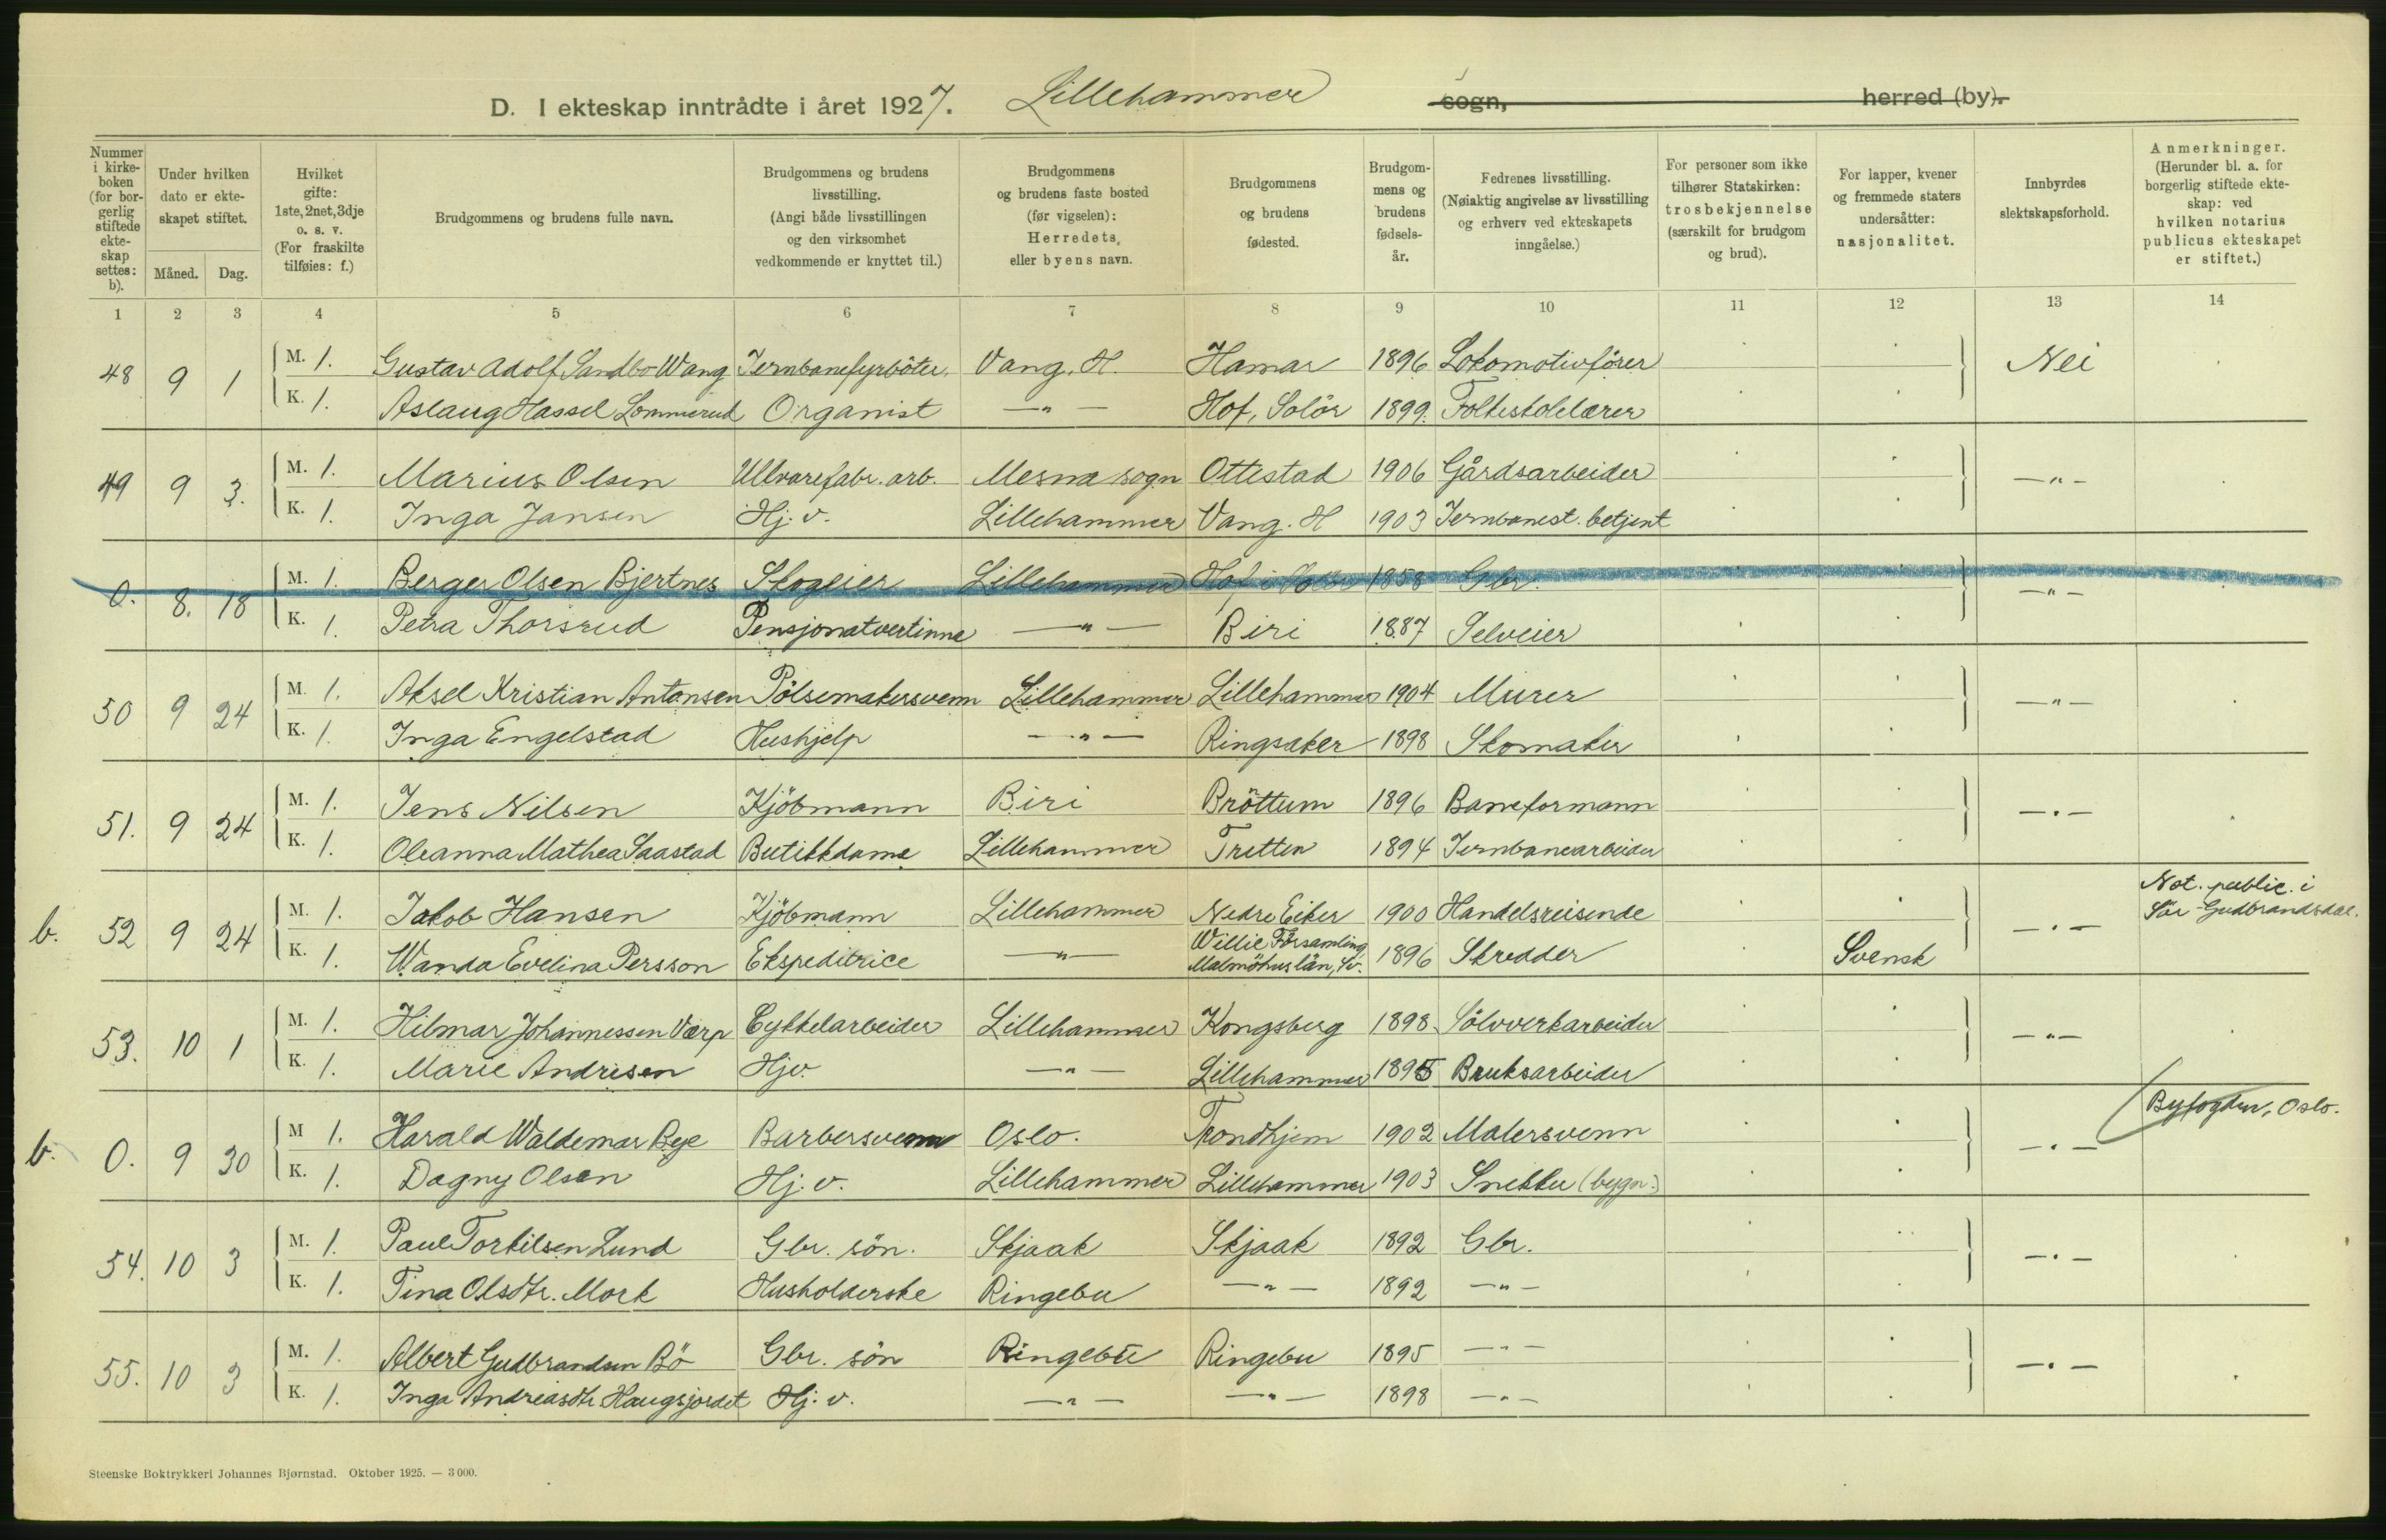 D. I ekteskap inntrådte i året 1927. Lillehammer sogn, herred (by).
Nummer i kirkeboken (for borgerlig stiftede ekteskap settes: b).
Under hvilken dato er ekteskapet stiftet.
Måned. Dag.
Hvilket gifte: 1ste, 2net, 3dje o. s. v. (For fraskilte tilføies: f.)
Brudgommens og brudens fulle navn.
Brudgommens og brudens livsstilling. (Angi både livsstillingen og den virksomhet vedkommende er knyttet til.)
Brudgommens og brudens faste bosted (før vigselen): Herredets, eller byens navn.
Brudgommens og brudens fødested.
Brudgommens og brudens fødselsår.
Fedrenes livsstilling. (Nøiaktig angivelse av livsstilling og erhverv ved ekteskapets inngåelse.)
For personer som ikke tilhører Statskirken: trosbekjennelse (særskilt for brudgom og brud).
For lapper, kvener og fremmede staters undersåtter: nasjonalitet.
Innbyrdes slektskapsforhold.
Anmerkninger. (Herunder bl. a. for borgerlig stiftede ekteskap: ved hvilken notarius publicus ekteskapet er stiftet.)
1 2 3 4 5 6 7 8 9 10 11 12 13 14
48 9 1 M. 1. Gustav Adolf Sandbo Wang Jernbanefyrböter. Vang. H. Hamar 1896 Lokomotivförer Nei
K. 1. Aslaug Hassel Lommerud Organist —"— Hof, Solör 1899. Folkeskolelærer
49 9 3. M. 1. Marius Olsen Ullvarefabr. arb. Mesna sogn Ottestad 1906 Gårdsarbeider —"—
K. 1. Inga Jansen Hj. v. Lillehammer Vang. H 1903 Jernbanest. betjent
0. 8. 18 M. 1. Berger Olsen Bjertnes Skogeier Lillehammer Hof i Solör 1858 Gbr. —"—
K. 1. Petra Thorsrud Pensjonatvertinne —"— Biri 1887 Selveier
50 9 24 M. 1. Aksel Kristian Antonsen Pölsemakersvenn Lillehammer Lillehammer 1904 Murer —"—
K. 1. Inga Engelstad Hushjelp —"— Ringsaker 1898 Skomaker
51. 9 24 M. 1. Jens Nilsen Kjöbmann Biri Bröttum 1896 Baneformann —"—
K. 1. Oleanna Mathea Saastad Butikkdame Lillehammer Tretten 1894 Jernbanearbeider
b. 52 9 24 M. 1. Jakob Hansen Kjöbmann Lillehammer Nedre Eiker 1900 Handelsreisende —"— Not. public. i Sör-Gudbrandsdal.
K. 1. Wanda Evelina Persson Ekspeditrice —"— Willie Församling Malmöhus län, Sv. 1896 Skredder Svensk
53. 10 1 M. 1. Hilmar Johannessen Værp Cykkelarbeider Lillehammer Kongsberg 1898 Sölvverkarbeider —"—
K. 1. Marie Andresen Hjv. —"— Lillehammer 1895 Bruksarbeider
b. 0. 9 30 M 1. Harald Waldemar Bye Barbersvenn Oslo. Trondhjem 1902 Malersvenn —"— Byfogden, Oslo.
K. 1. Dagny Olsen Hj. v. Lillehammer Lillehammer 1903 Snekker (bygn.)
54. 10 3 M. 1. Paul Torkilsen Lund Gbr. sön. Skjaak Skjaak 1892 Gbr. —"—
K. 1. Tina Olsdtr. Mork Husholderske Ringebu —"— 1892 —"—
55. 10 3 M. 1. Albert Gudbrandsen Bö Gbr. sön Ringebu Ringebu 1895 —"— —"—
K. 1. Inga Andreasdtr Haugsjordet Hj. v. —"— —"— 1898 —"—
Steenske Boktrykkeri Johannes Bjørnstad. Oktober 1925. — 3000.